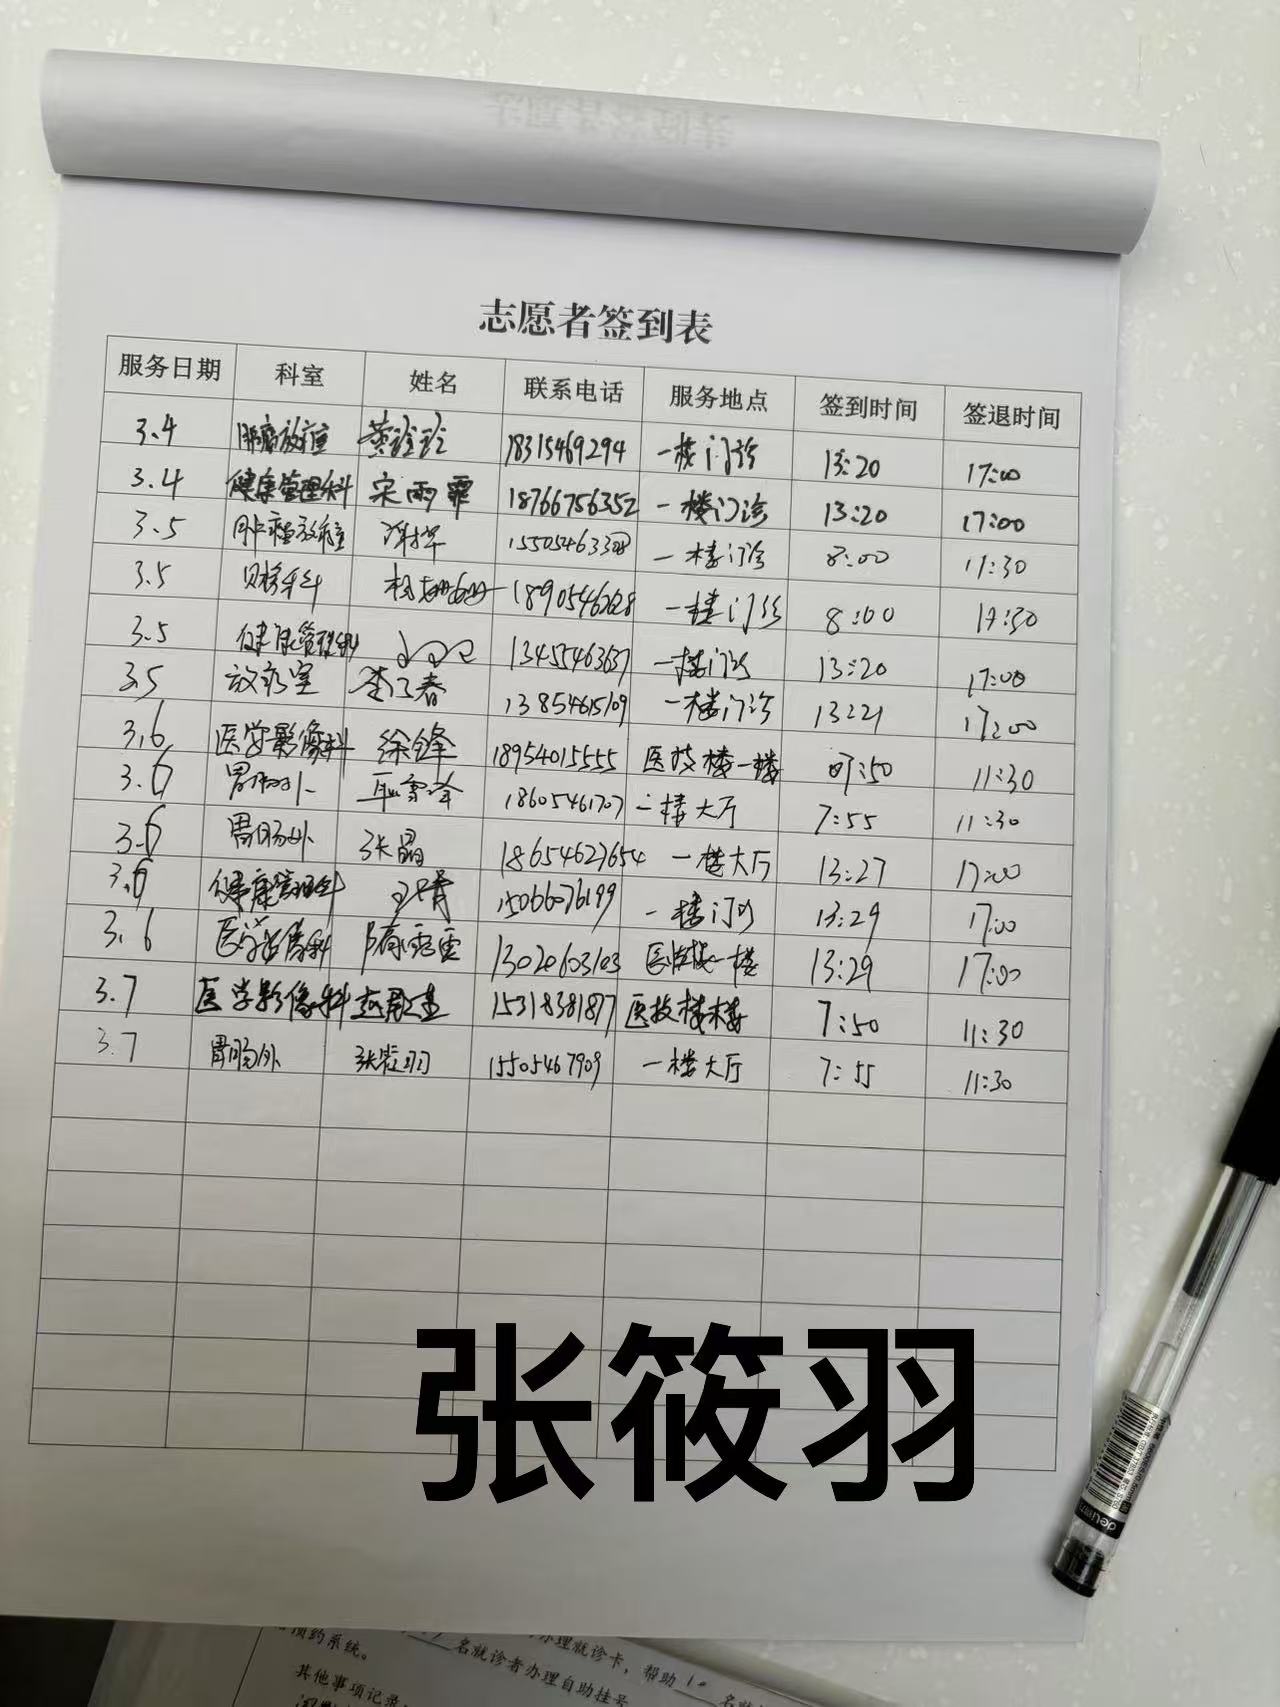 志愿者签到表
服务日期 科室 姓名 联系电话 服务地点 签到时间 签退时间
3.4 肿瘤放疗 黄玲玲 18315469294 一楼门诊 13:20 17:00
3.4 健康管理科 宋雨霏 18766756352 一楼门诊 13:20 17:00
3.5 肿瘤放疗 15505463308 一楼门诊 8:00 11:30
3.5 8:00
3.5 健康管理科 13455463637 一楼门诊 13:20 17:00
3.5 放疗室 13854615109 一楼门诊 13:21 17:00
3.6 医学影像科 徐锋 18954015555 医技楼一楼 07:50 11:30
3.6 胃肠外 18605461707 一楼大厅 7:55 11:30
3.6 胃肠外 张晶 18654627654 一楼大厅 13:27 17:00
3.6 健康管理科 15066076199 一楼门诊 13:29 17:00
3.6 医学影像科 13020603103 医技楼一楼 13:29 17:00
3.7 医学影像科 15318381877 7:50 11:30
3.7 胃肠外 张筱羽 15505467909 一楼大厅 7:55 11:30
张筱羽
deli
办理就诊卡，帮助10
预约系统。 名就诊者办理自助挂号
其他事项记录